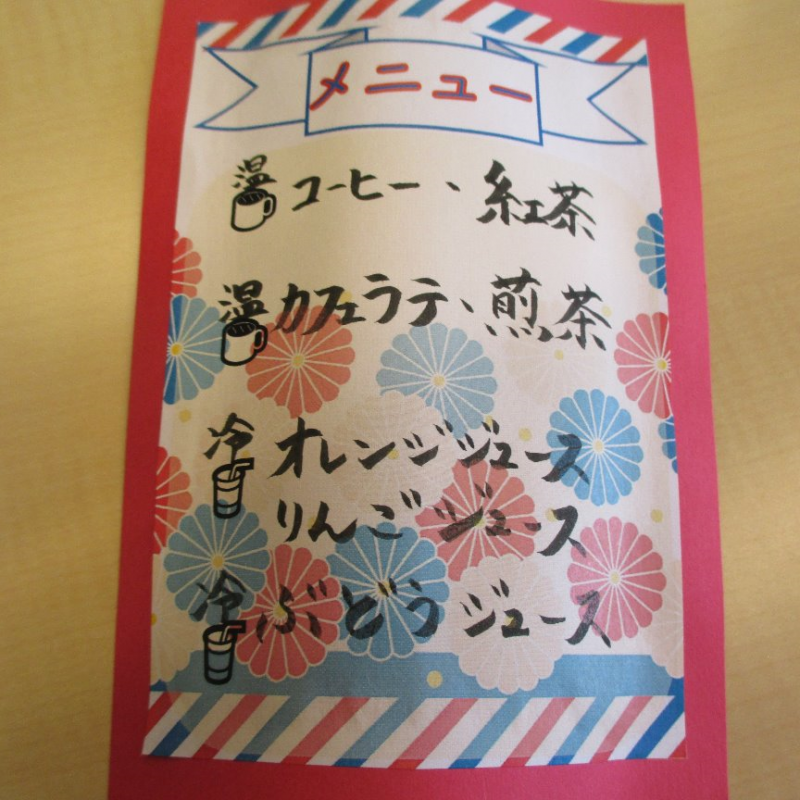 メニュー
温 コーヒー、紅茶
温 カフェラテ、煎茶
冷 オレンジジュース
りんごジュース
冷 ぶどうジュース